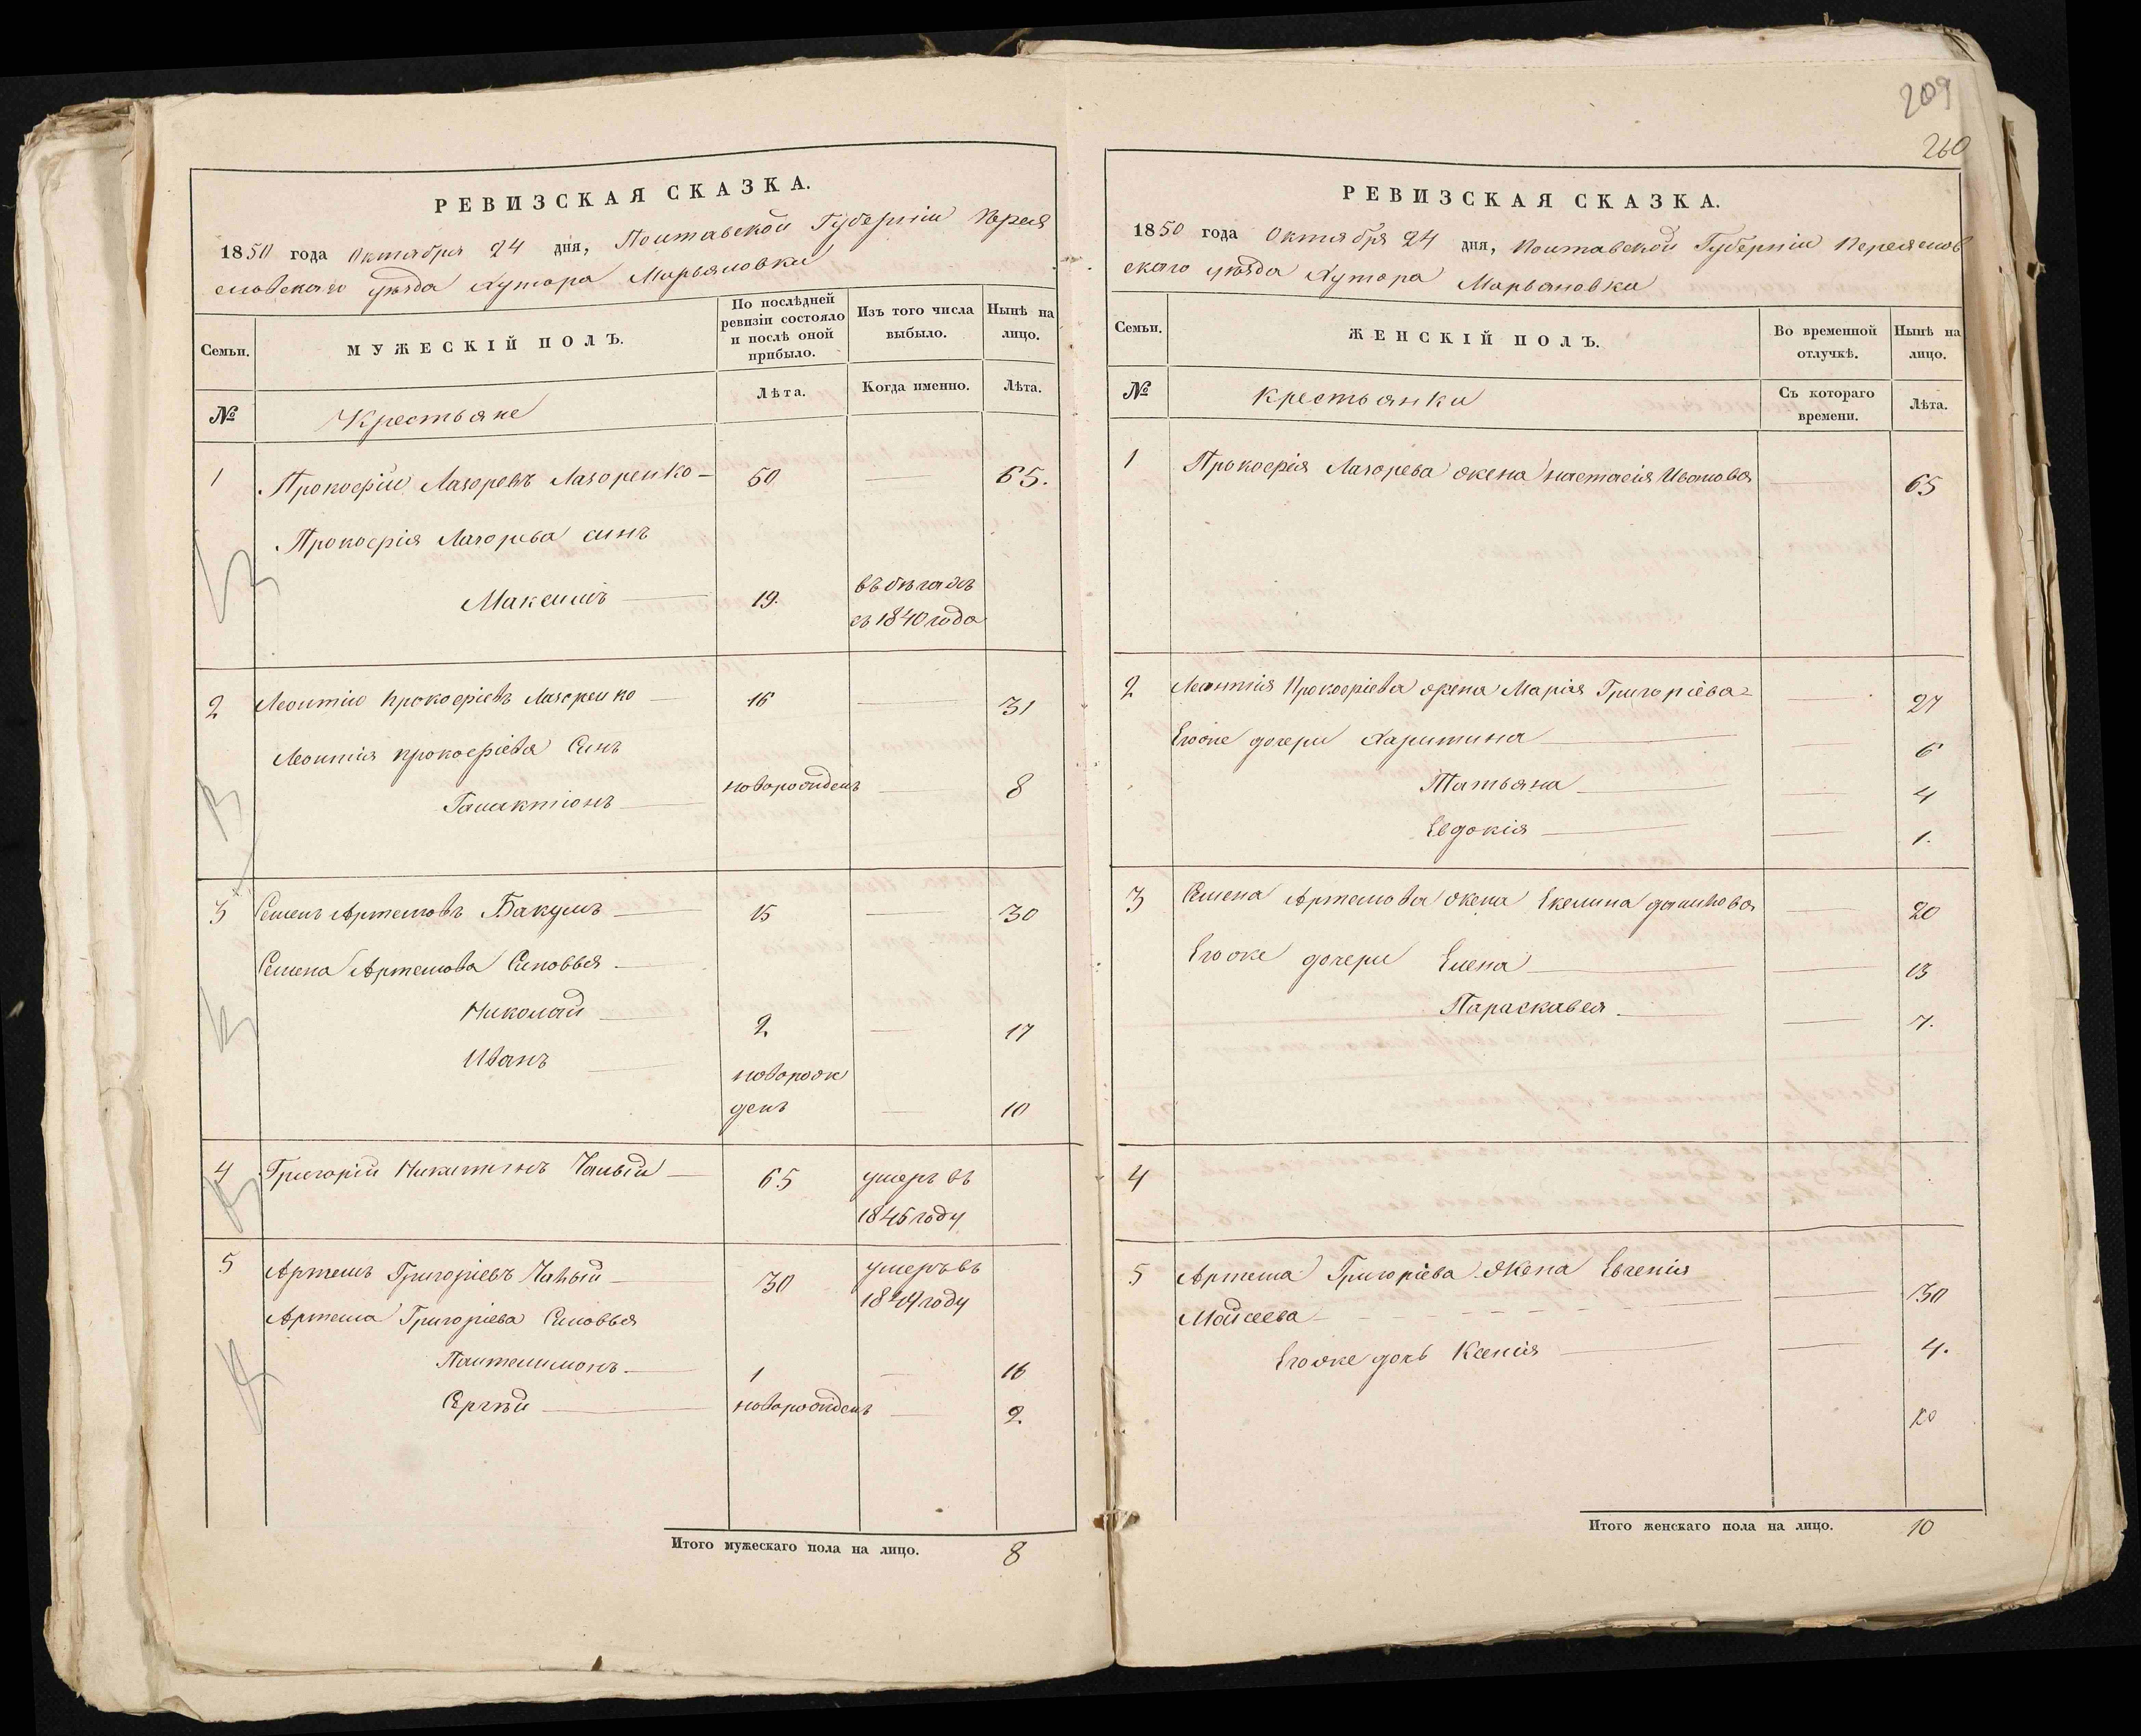 209
260
РЕВИЗСКАЯ СКАЗКА.
1850 года Октября 24 дня, Полтавской Губерніи Перея
словскаго уѣзда Хутора Марьяновки
Семьи. МУЖЕСКІЙ ПОЛЪ. По послѣдней ревизіи состояло и послѣ оной прибыло. Изъ того числа выбыло. Нынѣ на лицо.
№ Крестьяне Лѣта. Когда именно. Лѣта.
1 Прокофій Лазоревъ Лазоренко 50 — 65.
Прокофія Лазорева синъ
Максимъ 19. въ бѣгахъ
съ 1840 года
2 Леонтій Прокофіевъ Лазоренко 16 — 31
Леонтія Прокофіева Синъ
Галактіонъ новорожденъ — 8
3 Семенъ Артемовъ Бакумъ 15 — 30
Семена Артемова Синовья
Николай 2 — 17
Иванъ новорож
денъ — 10
4 Григорій Никитинъ 65 умеръ въ
1845 году
5 Артемъ Григоріевъ 30 умеръ въ
1849 году
Артема Григоріева Синовья
Пантелимонъ 1 — 16
Сергѣй новорожденъ — 2.
Итого мужескаго пола на лицо. 8
РЕВИЗСКАЯ СКАЗКА.
1850 года Октября 24 дня, Полтавской Губерніи Переяслов
скаго уѣзда Хутора Марьановки
Семьи. ЖЕНСКІЙ ПОЛЪ. Во временной отлучкѣ. Нынѣ на лицо.
№ Крестьянки Съ котораго времени. Лѣта.
1 Прокофія Лазорева жена Настасія Иванова — 65
2 Леонтія Прокофіева жена Марія Григоріева — 27
Егоже дочери Харитина — 6
Татьяна — 4
Евдокія — 1.
3 Семена Артемова жена — 20
Егоже дочери Елена — 13
Параскавея — 7.
4
5 Артема Григоріева жена Евгенія
Мойсеева — 30
Егоже дочь Ксенія — 4.
Итого женскаго пола на лицо. 10